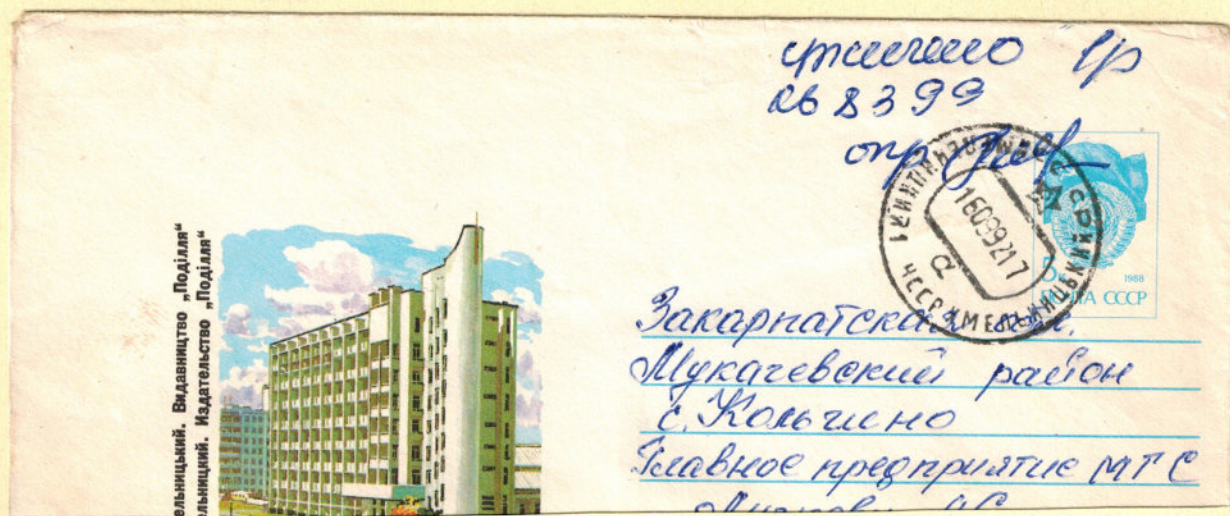 268399
опр
ХМЕЛЬНИЦКИЙ 1
УССР ХМЕЛЬНИЦЬКИЙ
16099217
5
1988
ПОЧТА СССР
ельницький. Видавництво „Поділля“
ельницкий. Издательство „Поділля“
Закарпатская обл.
Мукачевский район
с. Кольчино
Главное предприятие МТС